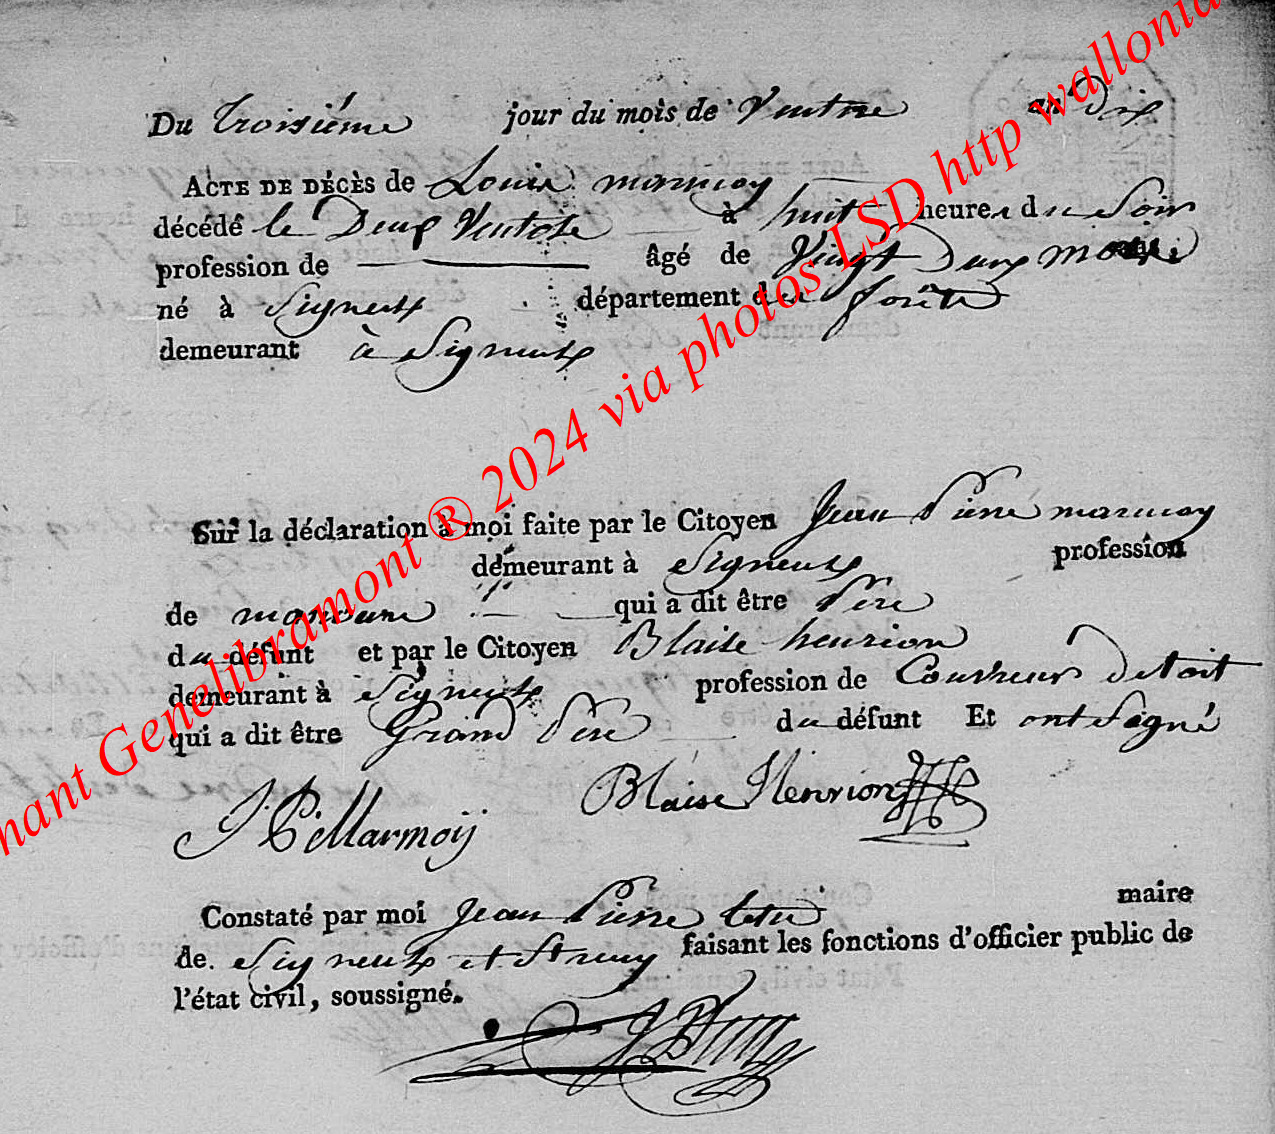 Du troisiéme jour du mois de Ventose an Dix
ACTE DE DÉCÈS de Louis marmoy
décédé le Deux Ventose à huit heures du Soir
profession de âgé de Vingt Deux mois
né à Signeulx département des forêts
demeurant à Signeulx
Sur la déclaration à moi faite par le Citoyen Jean Pierre marmoy
demeurant à Signeulx profession
de qui a dit être Père
du défunt et par le Citoyen Blaise henrion
demeurant à Signeulx profession de Couvreur de toit
qui a dit être Grand Père du défunt Et ont Signé
J P Marmoij Blaise Henrion
Constaté par moi Jean Pierre maire
de Signeulx et faisant les fonctions d'officier public de
l'état civil, soussigné.
nant Genelibramont ® 2024 via photos LSD http wallonia